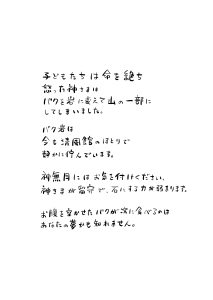 子どもたちは命を絶ち
怒った神さまは
バクを岩に変えて山の一部に
してしまいました。
バク岩は
今も清風館のほとりで
静かに佇んでいます。
神無月にはお気を付けください。
神さまが留守で、石にする力が弱まります。
お腹を空かせたバクが次に食べるのは
あなたの夢かも知れません。